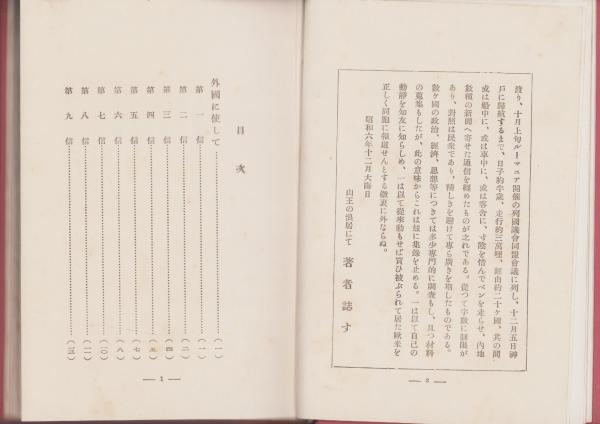 渡り、十月上旬ルーマニア開催の列國議會同盟會議に列し、十二月五日神
戸に歸航するまで、日子約半歳、走行約三萬哩、經由約二十ケ國、其の間
或は船中に、或は車中に、或は客舍に、寸陰を惜んでペンを走らせ、内地
數種の新聞へ寄せた通信を纏めたものが之れである。從つて字數に制限が
あり、對照は民衆であり、精しきを避けて專ら廣きを期したものである。
數ケ國の政治、經濟、思想等につきては多少專門的に調査もし、且つ材料
の蒐集もしたが、此の意味からこれは玆に集錄を止める。一は以て自己の
動靜を知友に知らしめ、一は以て從來動もせば買ひ被ぶられて居た歐米を
正しく同胞に報道せんとする微衷に外ならぬ。
昭和六年十二月大晦日
山王の浪居にて 著者誌す
— 2 —
目次
外國に使して……(一)
第一信……(一)
第二信……(二)
第三信……(四)
第四信……(五)
第五信……(七)
第六信……(八)
第七信……(一〇)
第八信……(一一)
第九信……(一三)
— 1 —